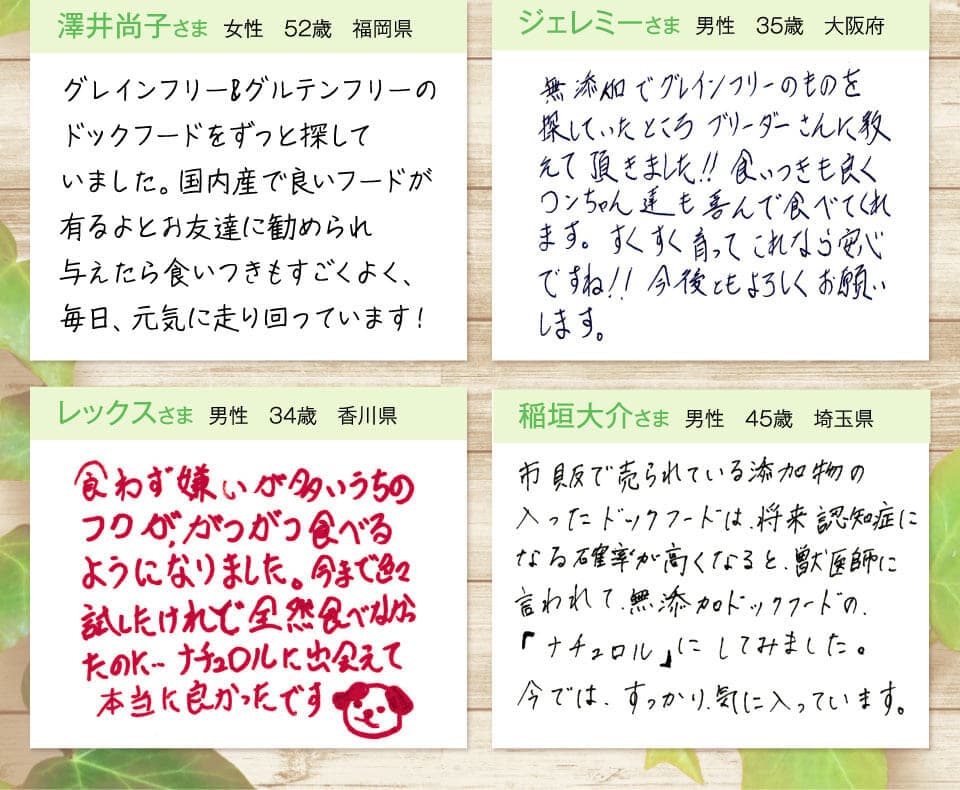 澤井尚子さま 女性 52歳 福岡県
グレインフリー&グルテンフリーの
ドックフードをずっと探して
いました。国内産で良いフードが
有るよとお友達に勧められ
与えたら食いつきもすごくよく、
毎日、元気に走り回っています!
ジェレミーさま 男性 35歳 大阪府
無添加でグレインフリーのものを
探していたところ ブリーダーさんに教
えて頂きました!! 食いつきも良く
ワンちゃん達も喜んで食べてくれ
ます。すくすく育ってこれなら安心
ですね!! 今後ともよろしくお願い
します。
レックスさま 男性 34歳 香川県
食わず嫌いが多いうちの
フクが、がつがつ食べる
ようになりました。今まで色々
試したけれど全然食べなかっ
たのに… ナチュロルに出会えて
本当に良かったです
稲垣大介さま 男性 45歳 埼玉県
市販で売られている添加物の
入ったドックフードは、将来認知症に
なる確率が高くなると、獣医師に
言われて、無添加ドックフードの、
「ナチュロル」にしてみました。
今では、すっかり、気に入っています。